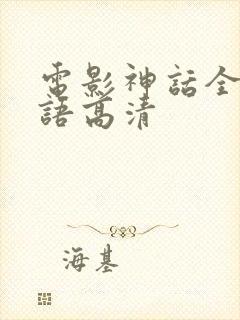 電影神話全
語高清
海基